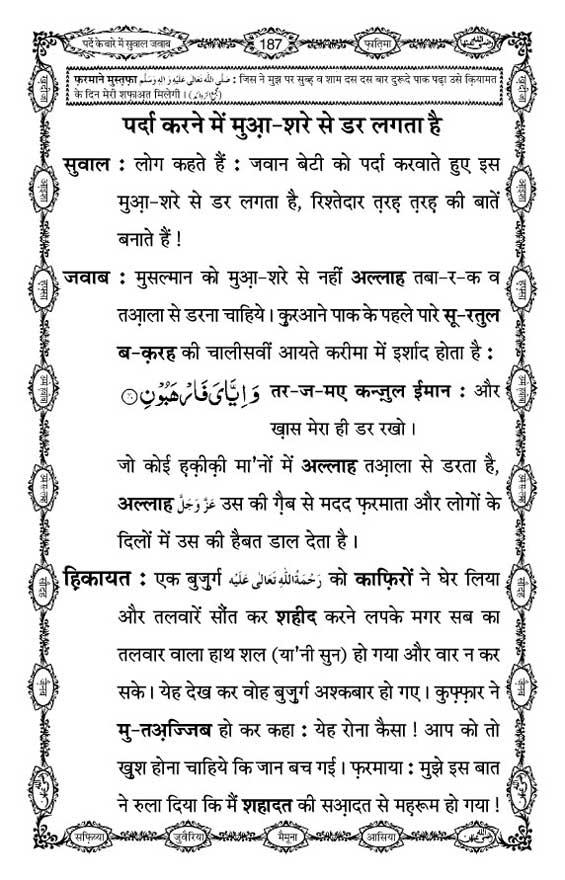 पर्दे के बारे में सुवाल जवाब
187
फ़ातिमा
फ़रमाने मुस्तफ़ा صَلَّى اللهُ تَعَالٰى عَلَيْهِ وَاٰلِهٖ وَسَلَّم : जिस ने मुझ पर सुब्ह व शाम दस दस बार दुरूदे पाक पढ़ा उसे क़ियामत
के दिन मेरी शफ़ाअत मिलेगी।
पर्दा करने में मुआ़-शरे से डर लगता है
सुवाल : लोग कहते हैं : जवान बेटी को पर्दा करवाते हुए इस
मुआ़-शरे से डर लगता है, रिश्तेदार त़रह़ त़रह़ की बातें
बनाते हैं !
जवाब : मुसल्मान को मुआ़-शरे से नहीं अल्लाह तबा-र-क व
तआ़ला से डरना चाहिये। क़ुरआने पाक के पहले पारे सू-रतुल
ब-क़रह की चालीसवीं आयते करीमा में इर्शाद होता है :
وَاِيَّايَ فَارْهَبُوْنِ तर-ज-मए कन्ज़ुल ईमान : और
ख़ास मेरा ही डर रखो।
जो कोई ह़क़ीक़ी मा'नों में अल्लाह तआ़ला से डरता है,
अल्लाह عَزَّوَجَلَّ उस की ग़ैब से मदद फ़रमाता और लोगों के
दिलों में उस की हैबत डाल देता है।
ह़िकायत : एक बुज़ुर्ग رَحْمَةُ اللهِ تَعَالٰى عَلَيْهِ को काफ़िरों ने घेर लिया
और तलवारें सौंत कर शहीद करने लपके मगर सब का
तलवार वाला हाथ शल (या'नी सुन) हो गया और वार न कर
सके। येह देख कर वोह बुज़ुर्ग अश्कबार हो गए। कुफ़्फ़ार ने
मु-तअ़ज्जिब हो कर कहा : येह रोना कैसा ! आप को तो
ख़ुश होना चाहिये कि जान बच गई। फ़रमाया : मुझे इस बात
ने रुला दिया कि मैं शहादत की सआ़दत से महरूम हो गया !
सफ़िय्या
जुवैरिया
मैमूना
आसिया